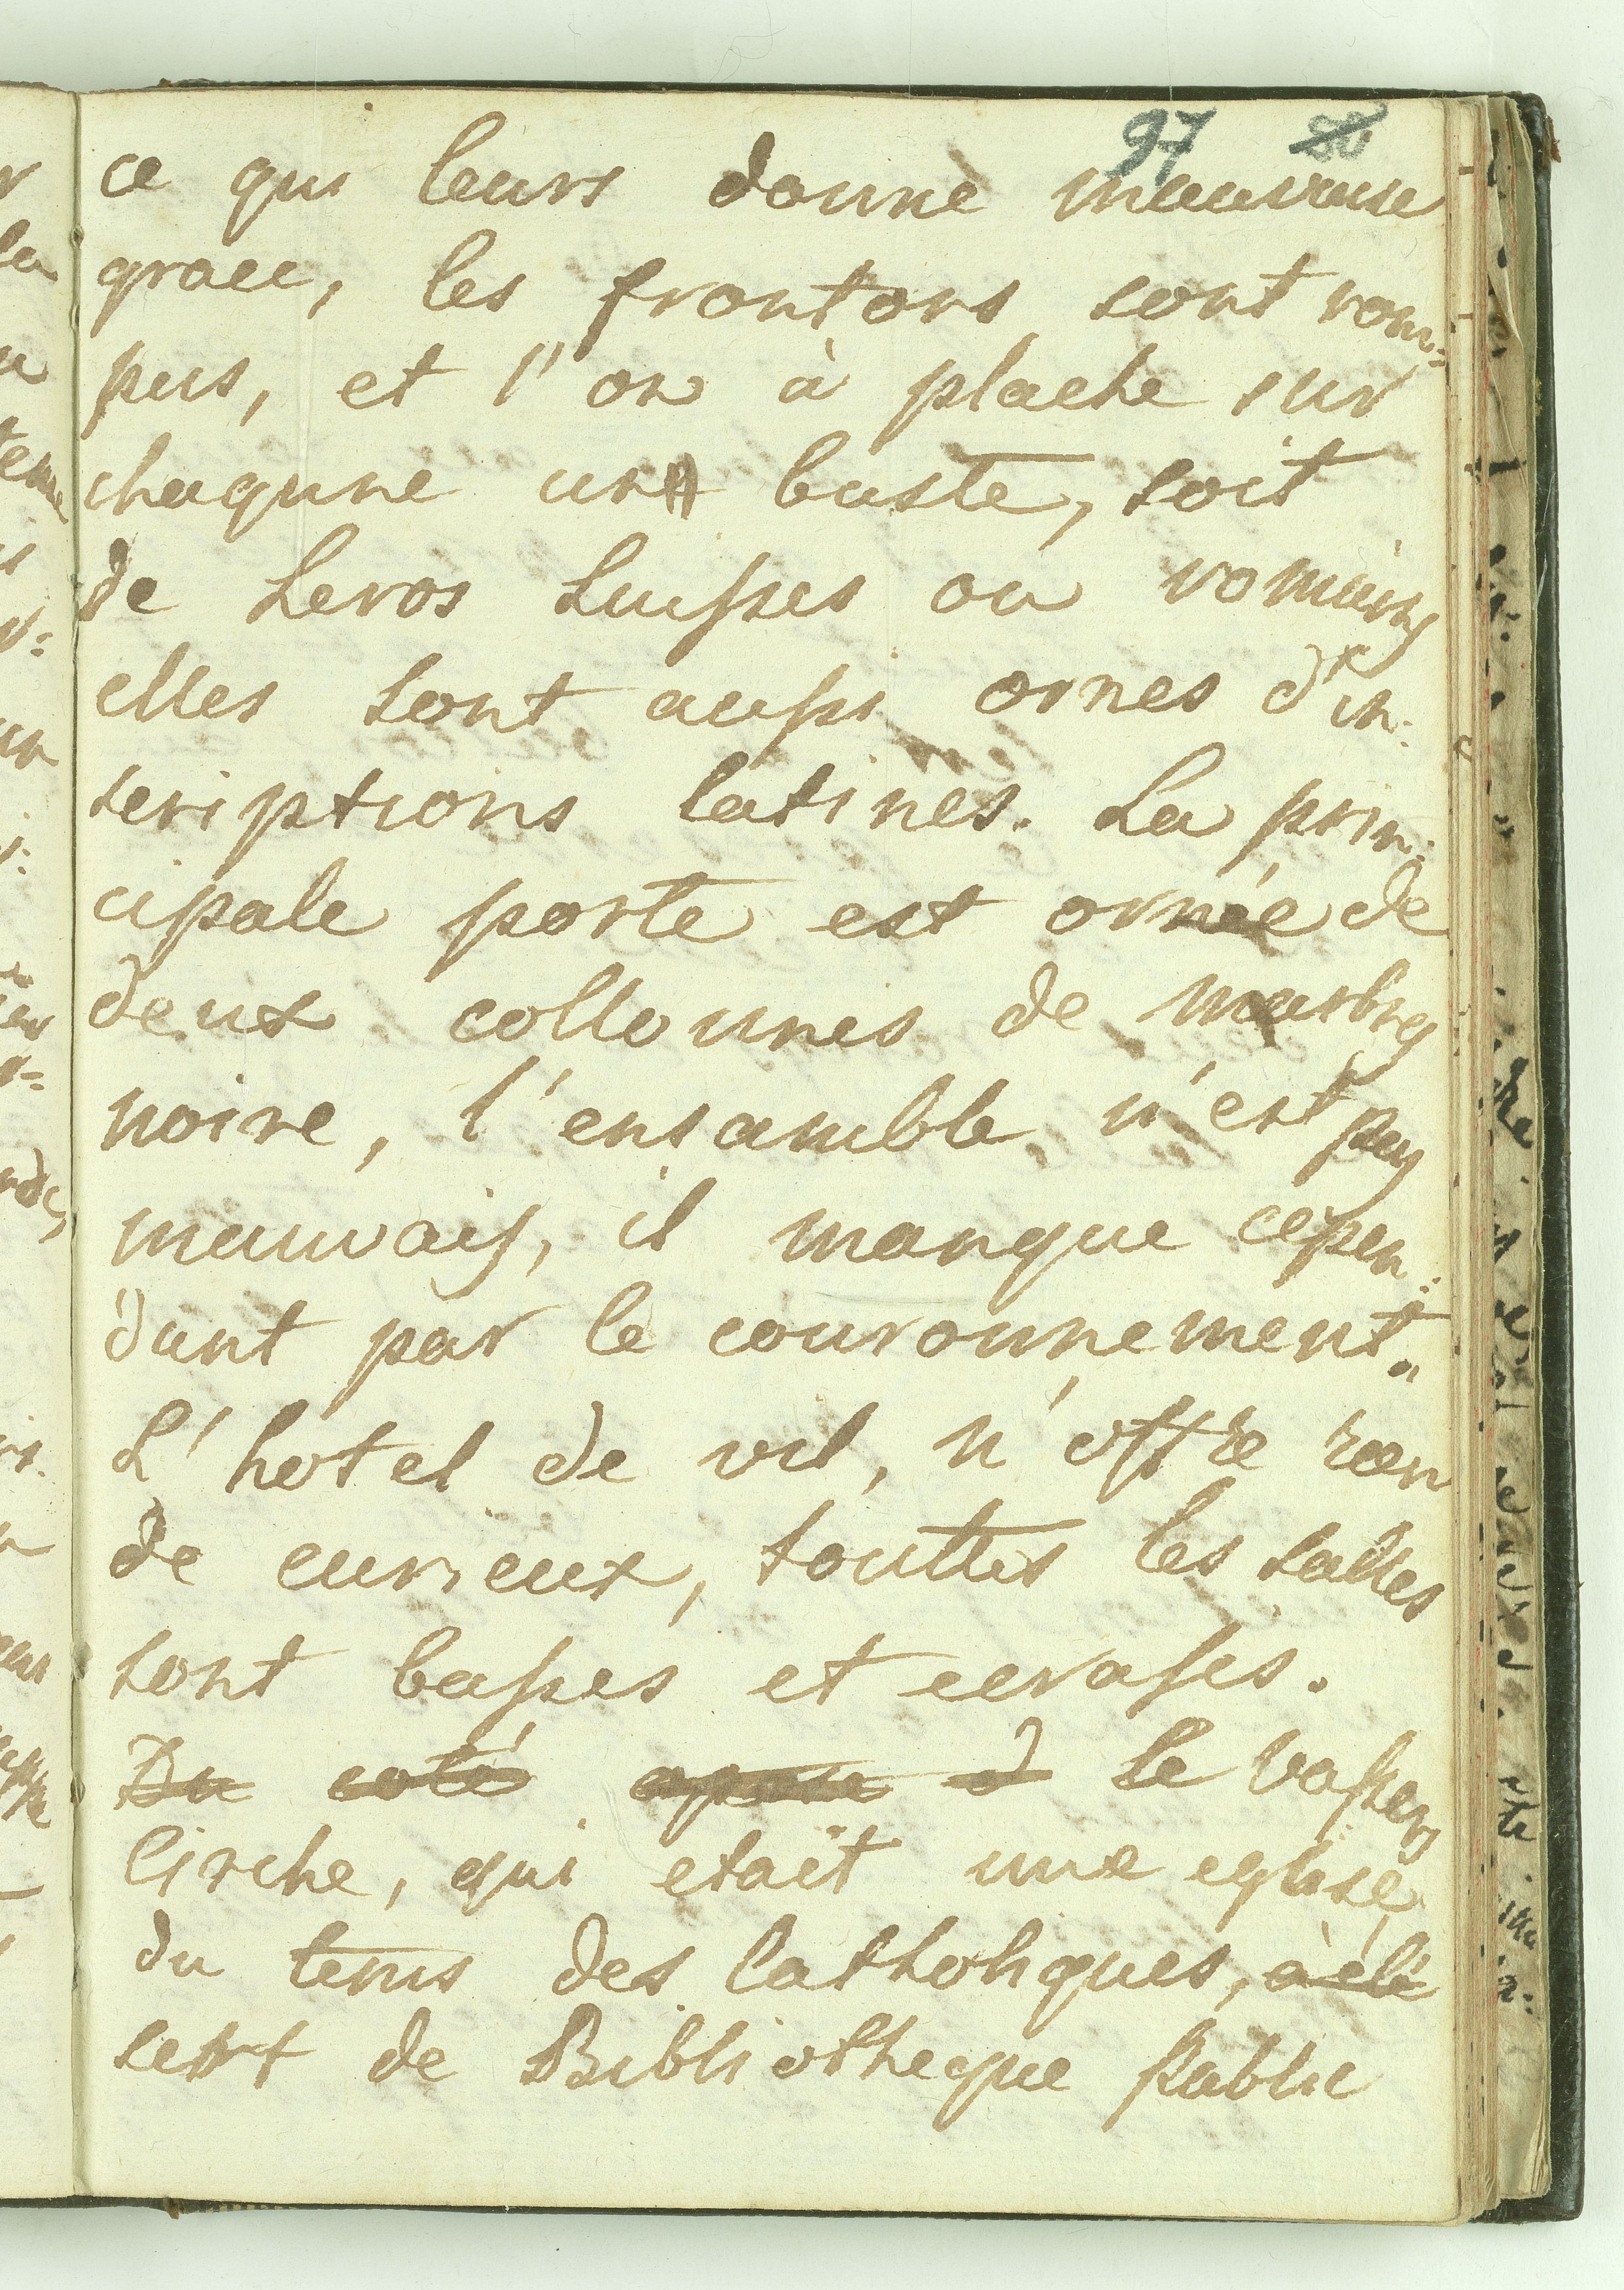 97 80
ce qui leurs donne mauvaise
grace, les frontons sont rom=
pus, et l'on à plache sur
chaqune un buste, soit
de heros Suisses ou romains
elles sont aussi ornes d'in:
scriptions latines. La prin:
cipale porte est ornée de
deux collounes de marbres
noire, l'ensamble n'est pas
mauvais, il manque cepen:
dant par le couronnement.
L'hotel de vil, n'offre rien
de curieux, touttes les salles
sont basses et ecrases.
Du coté à Le Vasser
Kirche, qui etait une eglise
du tems des Catholiques, à été
sert de Bibliotheque Public